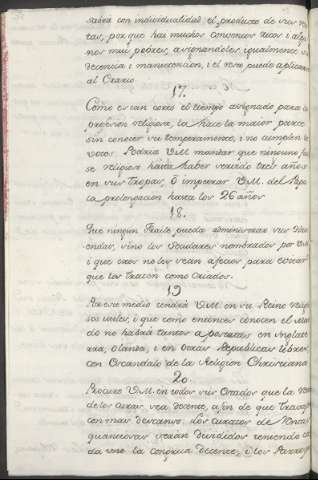 sabrá con individualidad el producto de sus
tas, por que hai muchos conventos ricos i algu
nos mui pobres, asignandoles igualmente su
decencia i manutencion, i el resto puedo aplicarse
al Erario
17.
Como es tan corto el tiempo asignado para la
profesion religiosa, la hace la maior parte
sin conocer su temperamento, i no cumplen sus
votos. Podria V.M. mandar que ninguno fue
se religioso hasta haber servido tres años
en sus Tropas, ó impetrar V.M. del Papa
la prolongacion hasta los 26 años
18.
Que ningun Fraile pueda administrar sus Haci
endas, sino los Seculares nombrados por V.M.
i que estos no los vean afectos para evitar
que los traten como criados.
19
Por este medio tendrá V.M. en su Reino religio
sos utiles, i que como entonces conocen el mun
do no habrá tantos apostatas en Inglate
rra, Olanda, i en otras Republicas libres
con Escandalo de la Religion Christiana
20
Procure V.M. en todos sus Estados que la
de los Curas sea decente, a fin de que
con mas descanso. Los Curatos de
quantiosas seran divididos teniendo ca
da uno la congrua decente, i los Parro